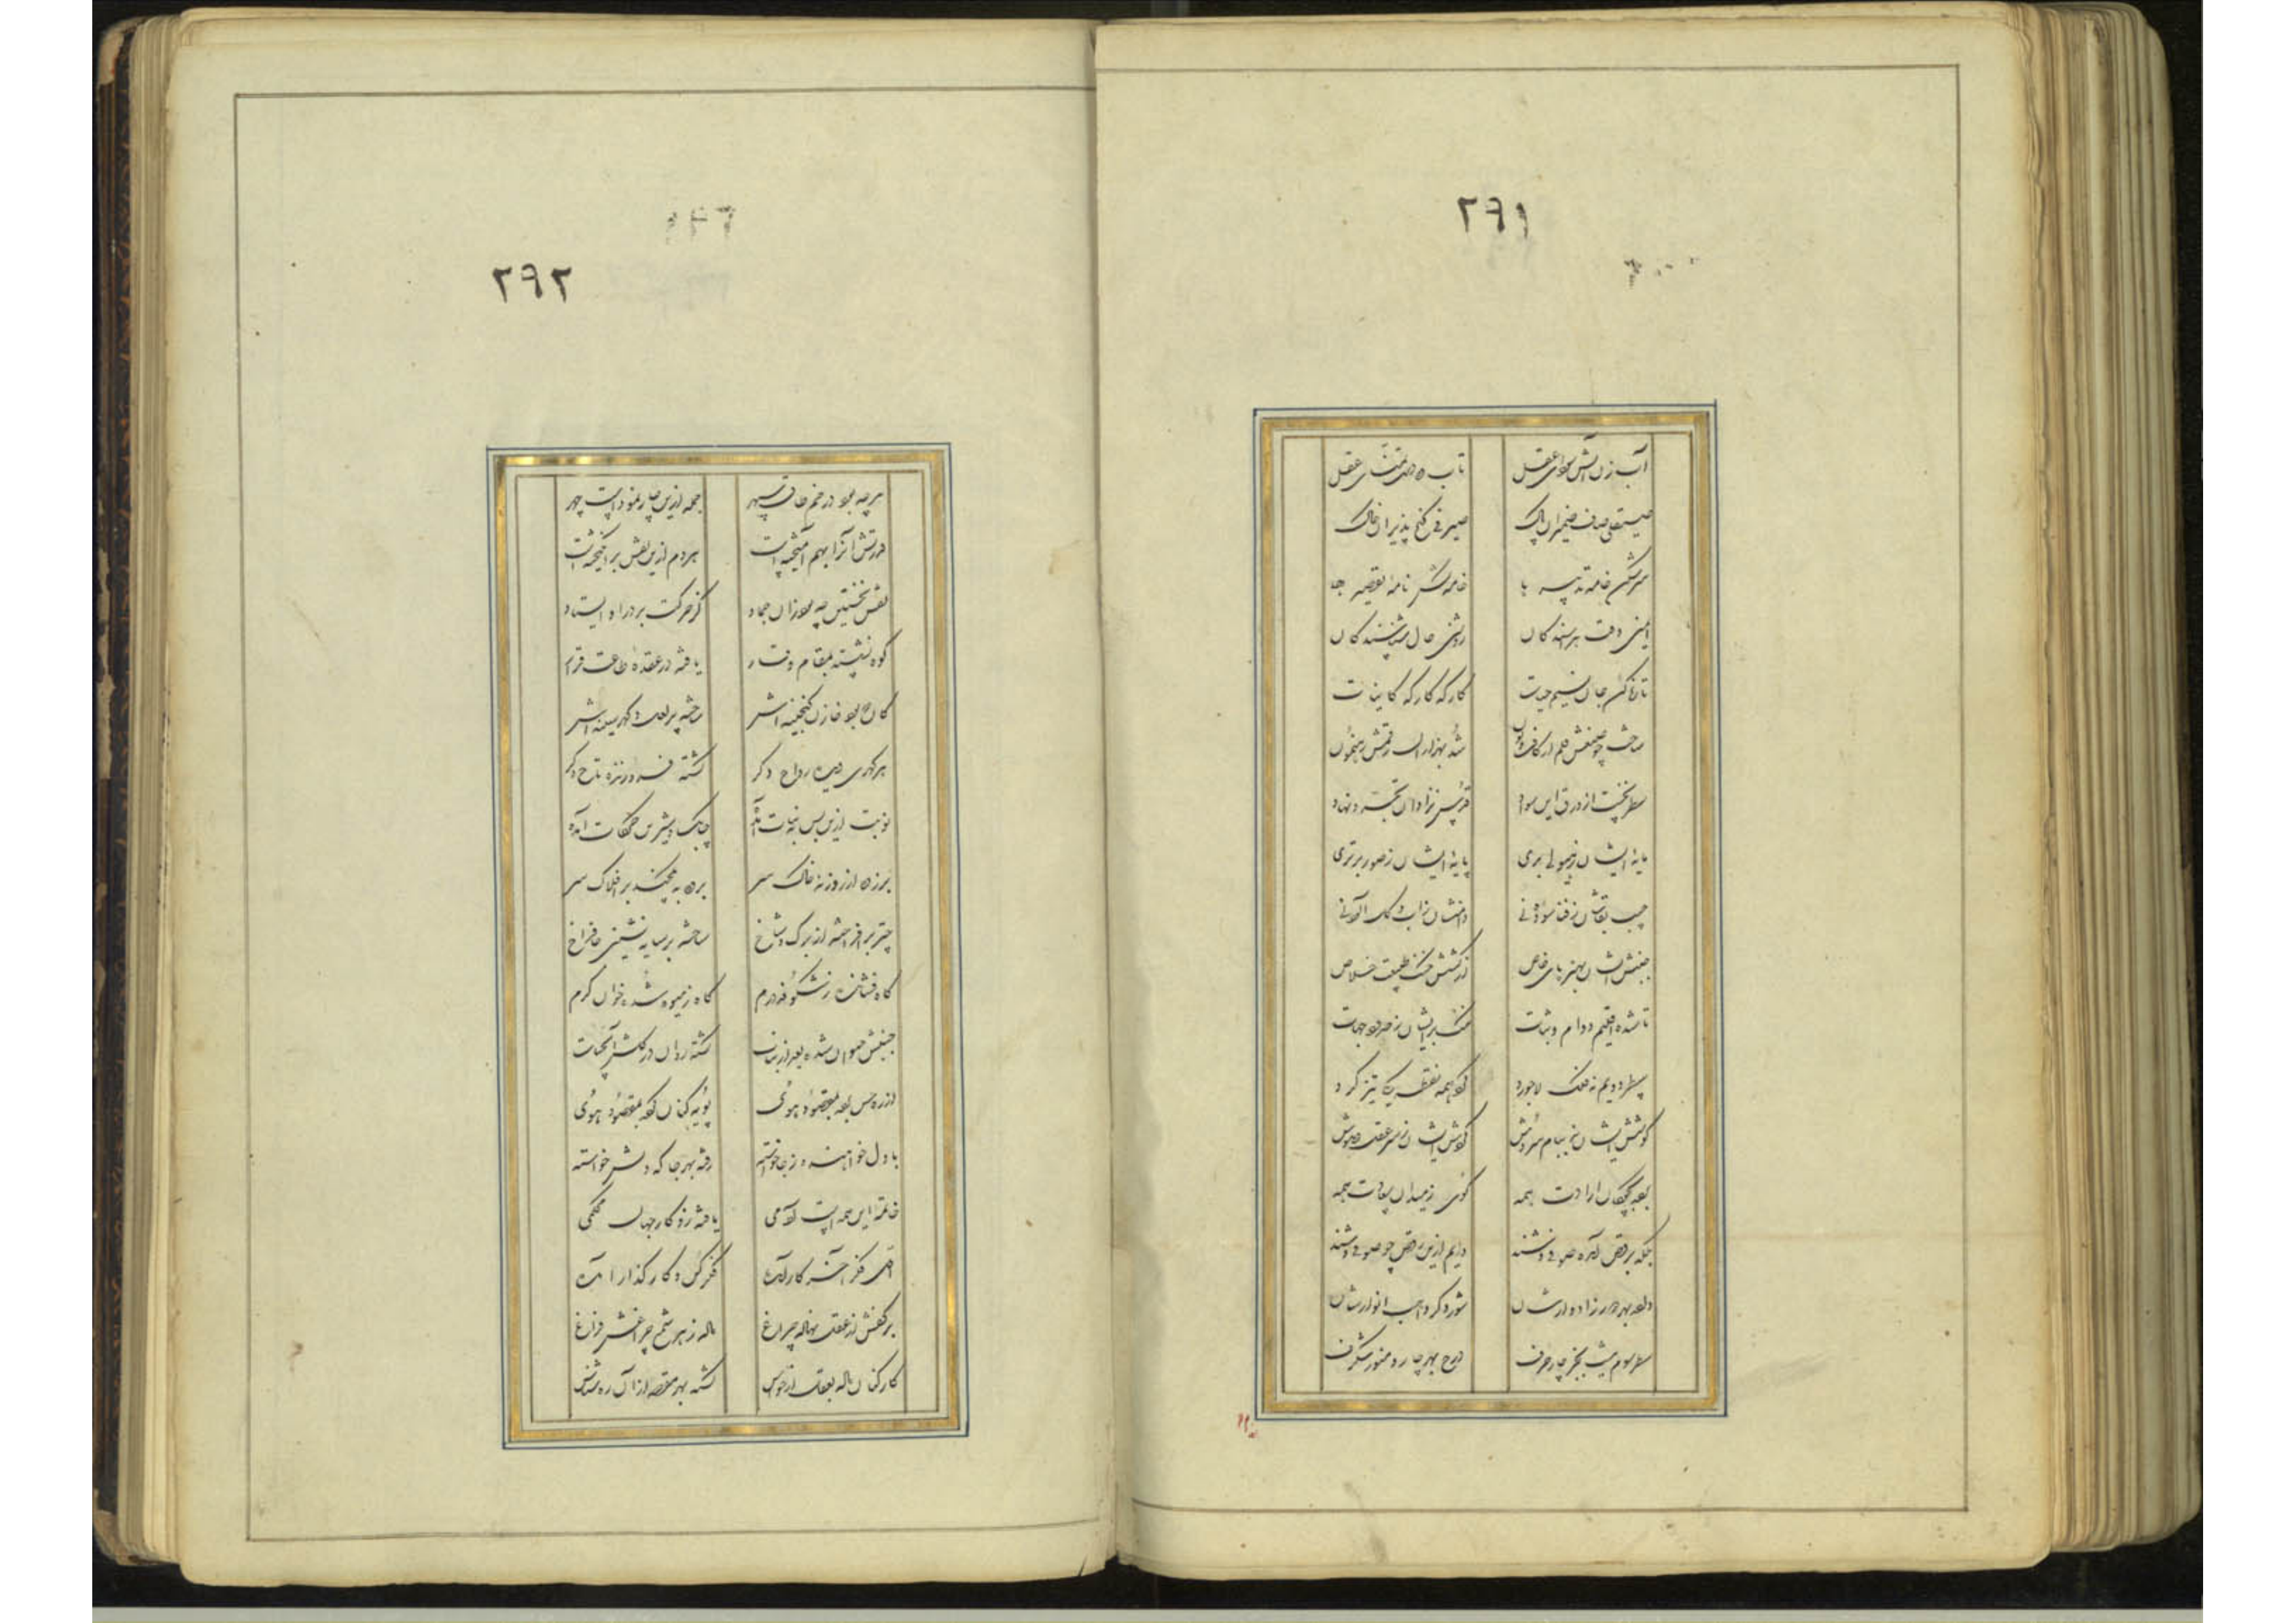 ۲۹۱
آب زن آتش سودای عقل
تاب ده دست تمنای عقل
صیقلی صاف ضمیران پاک
صیرفی گنج پذیران خاک
سرشکن خامه تدبیر ها
خامه کش نامه تقصیر ها
ایمنی وقت هراسندگان
روشنی حال شناسندگان
تازه کن جان نسیم حیات
کارگه کاینات
ساخت چو صنعش قلم از کاف و نون
شد بهزاران رقمش رهنمون
سطر نخست از ورق این سواد
نژادان تجرد نهاد
مایه ایشان ز هیولی بری
پایه ایشان ز صور برتری
جیب بقاشان ز فنا سوده نی
دامنشان ز آب و گل آلوده نی
جنبش ایشان بهنرهای خاص
از کشش طبیعت خلاص
تا شده اقلیم دوام و ثبات
تنگ بر ایشان ز حدود جهات
سطر دویم نه فلک لاجورد
همه نقطه تیز گرد
کوشش ایشان ز پیام سروش
گوش ایشان
بوده بچوگان ارادت همه
گوی ز میدان سعادت همه
بلکه برقص آمده صوفی وشند
دایم ازین رقص چو صوفی خوشند
دور بهر ادوارشان
شود گرد انوارشان
سطر سوم نیست بجز چار حرف
درج بهر چار رموز شگرف
۲۹۲
هر چه بود در خم طاق سپهر
جمله ازین چار نمودست چهر
قدرتش آنرا بهم آمیختست
هر دم ازین نقش بر انگیختست
نقش نخستین چه بود زان جماد
کز حرکت بر در او ایستاد
کوه نشسته بمقام وقار
یافته در عقده طاعت قرار
کان بود خازن گنجینه اش
ساخته پر لعل و گهر سینه اش
هر گهری دیده رواج دگر
گشته فروزنده تاج دگر
نوبت ازین پس بنبات آمده
چابک و شیرین حرکات آمده
بر زده از روزنه خاک سر
برده به یکچند بر افلاک سر
چتر بر افراخته از برگ و شاخ
ساخته بر سایه نشین جا فراخ
گاه فشانده ز شکوفه درم
گاه ز میوه شده خوان کرم
جنبش حیوان شده بعد از نبات
گشته روان در گلشن آبحیات
از ره حس برده بمقصود بوی
پویه کنان کرده بمقصود روی
با دل خواهنده ز جا خواسته
رفته بهر جا که دلش خواسته
خاتمه این همه هست آدمی
یافته زو کار جهان محکمی
اول فکر آخر کار آمده
فکر کن و کار گذار آمده
بر کفش از عقل نهاده چراغ
داده ز هر شمع چراغش فراغ
کارکنان داده بعقل از حواس
گشته بهر مقصد از آن ره شناس